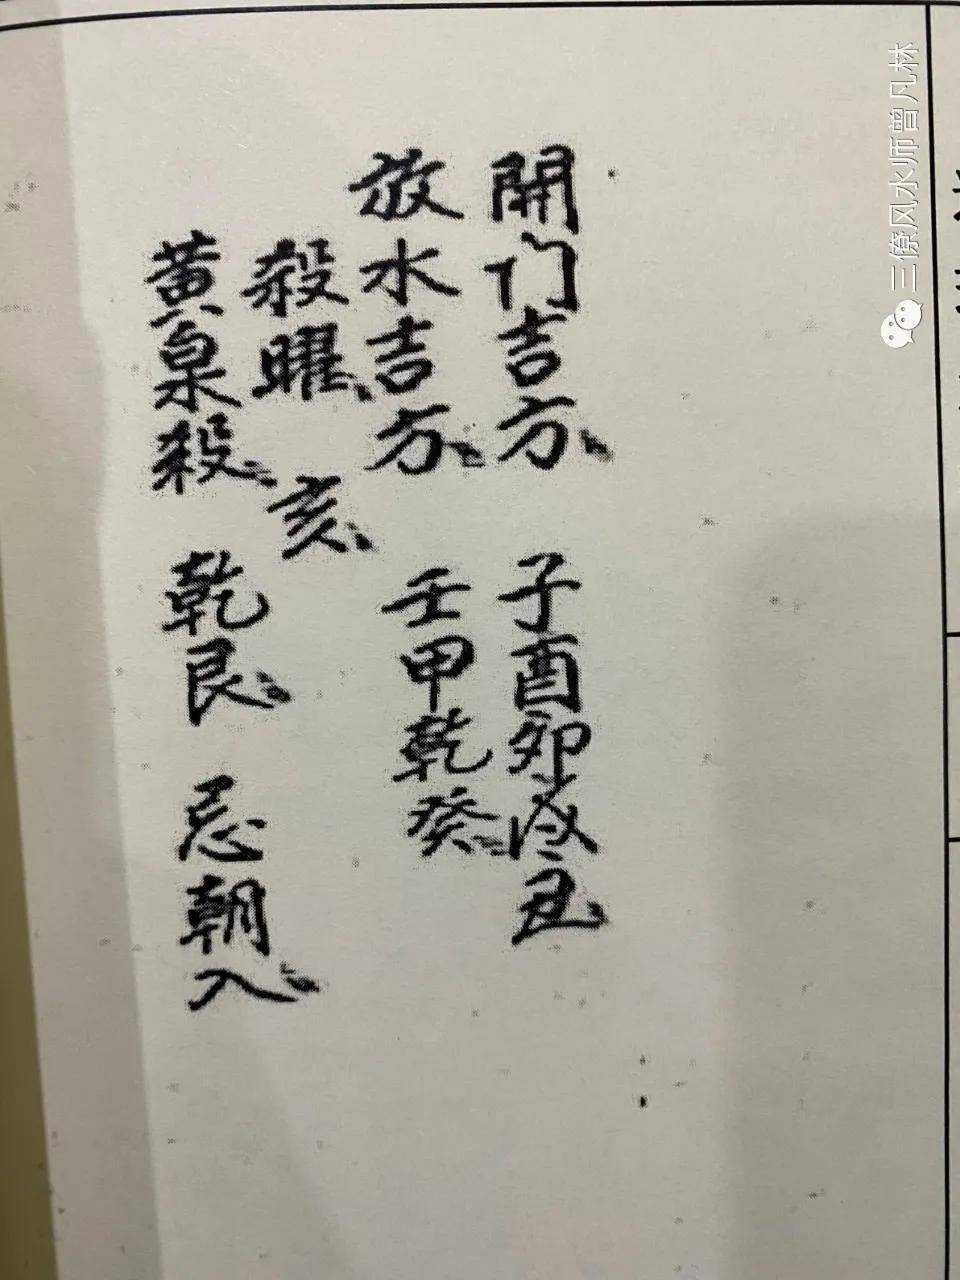 開门吉方、子酉卯
放水吉方、壬甲乾癸、
殺曜、亥、
黄泉殺、乾艮、忌朝入、
三僚风水师曾凡林